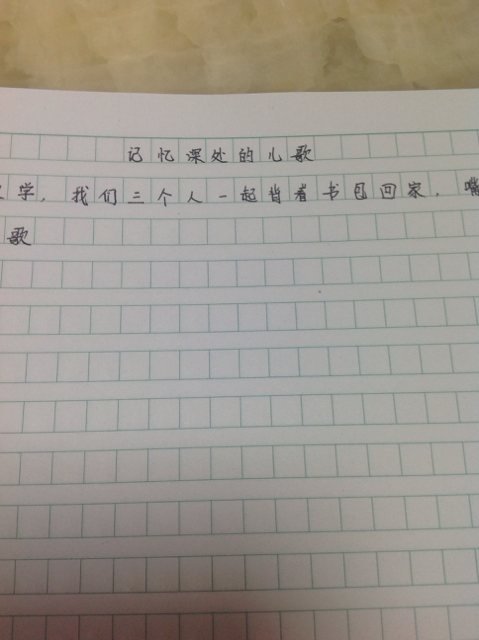 记忆深处的心歌
学，我们三个人一起背着书包回家，嘴
歌